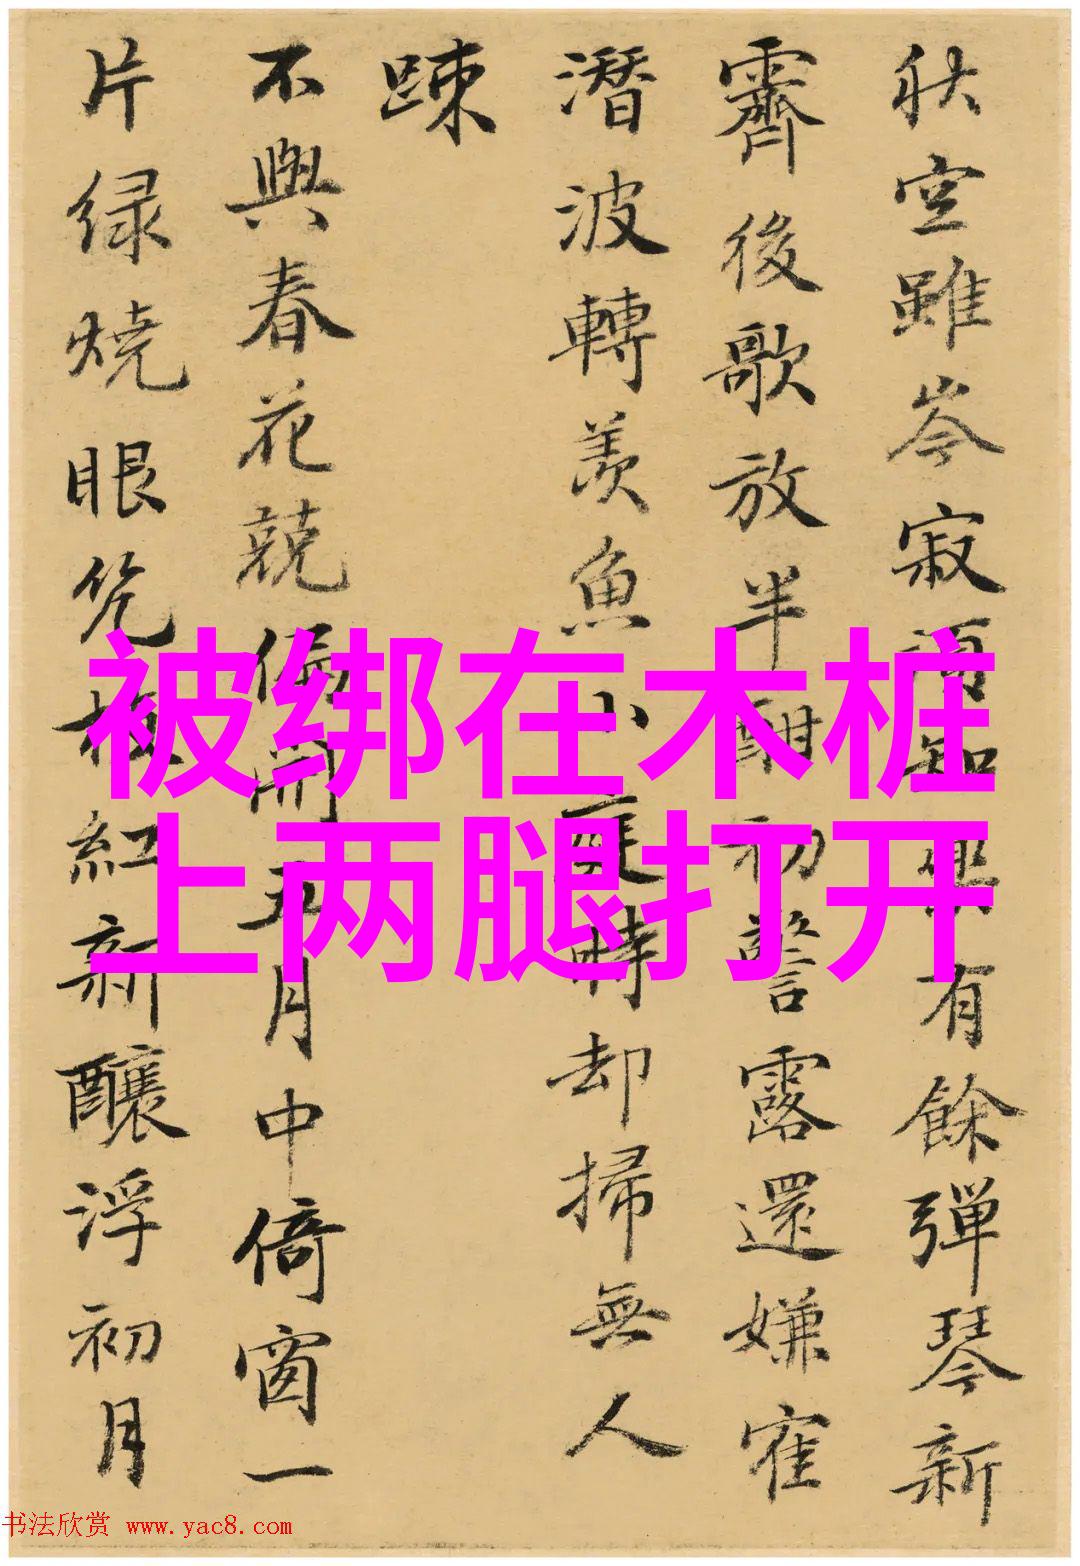 秋空雖岑寂酒知興有餘彈琴新
霽後歌放半酣初警露還嫌寉
潛波轉羨魚小庭時却掃無人
踈
不與春花競偏開五月中倚窗一
片緑燒眼枝紅新釀浮初月
被绑在木桩
上两腿打开
书法欣赏 www.yac8.com